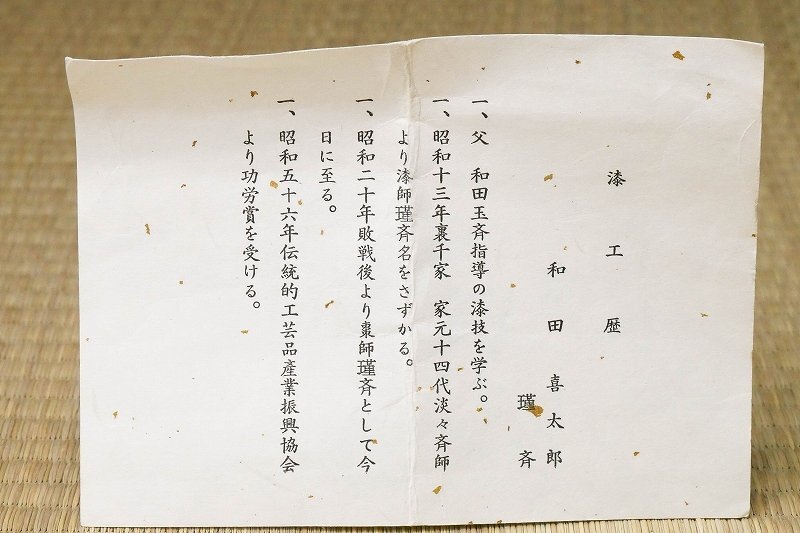 漆工歴
和田喜太郎
瑾斉
一、父 和田玉斉指導の漆技を学ぶ。
一、昭和十三年裏千家 家元十四代淡々斉師
より漆師瑾斉名をさずかる。
一、昭和二十年敗戦後より棗師瑾斉として今
日に至る。
一、昭和五十六年伝統的工芸品産業振興協会
より功労賞を受ける。